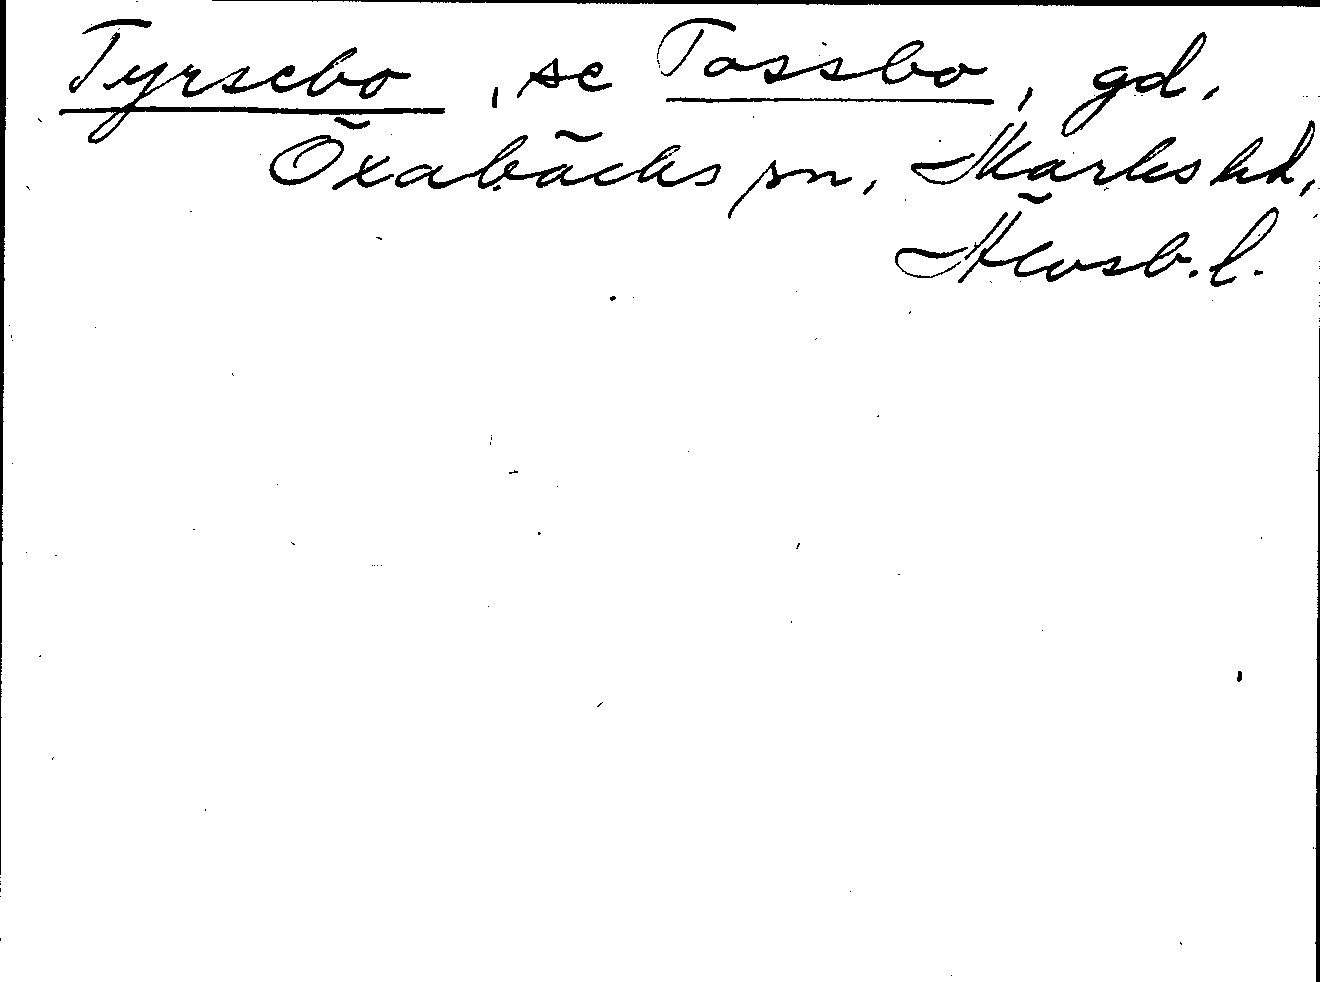 Tyrsebo, se Tossbo, gd,
Öxabäcks sn, Marks hd,
Älvsb. l.